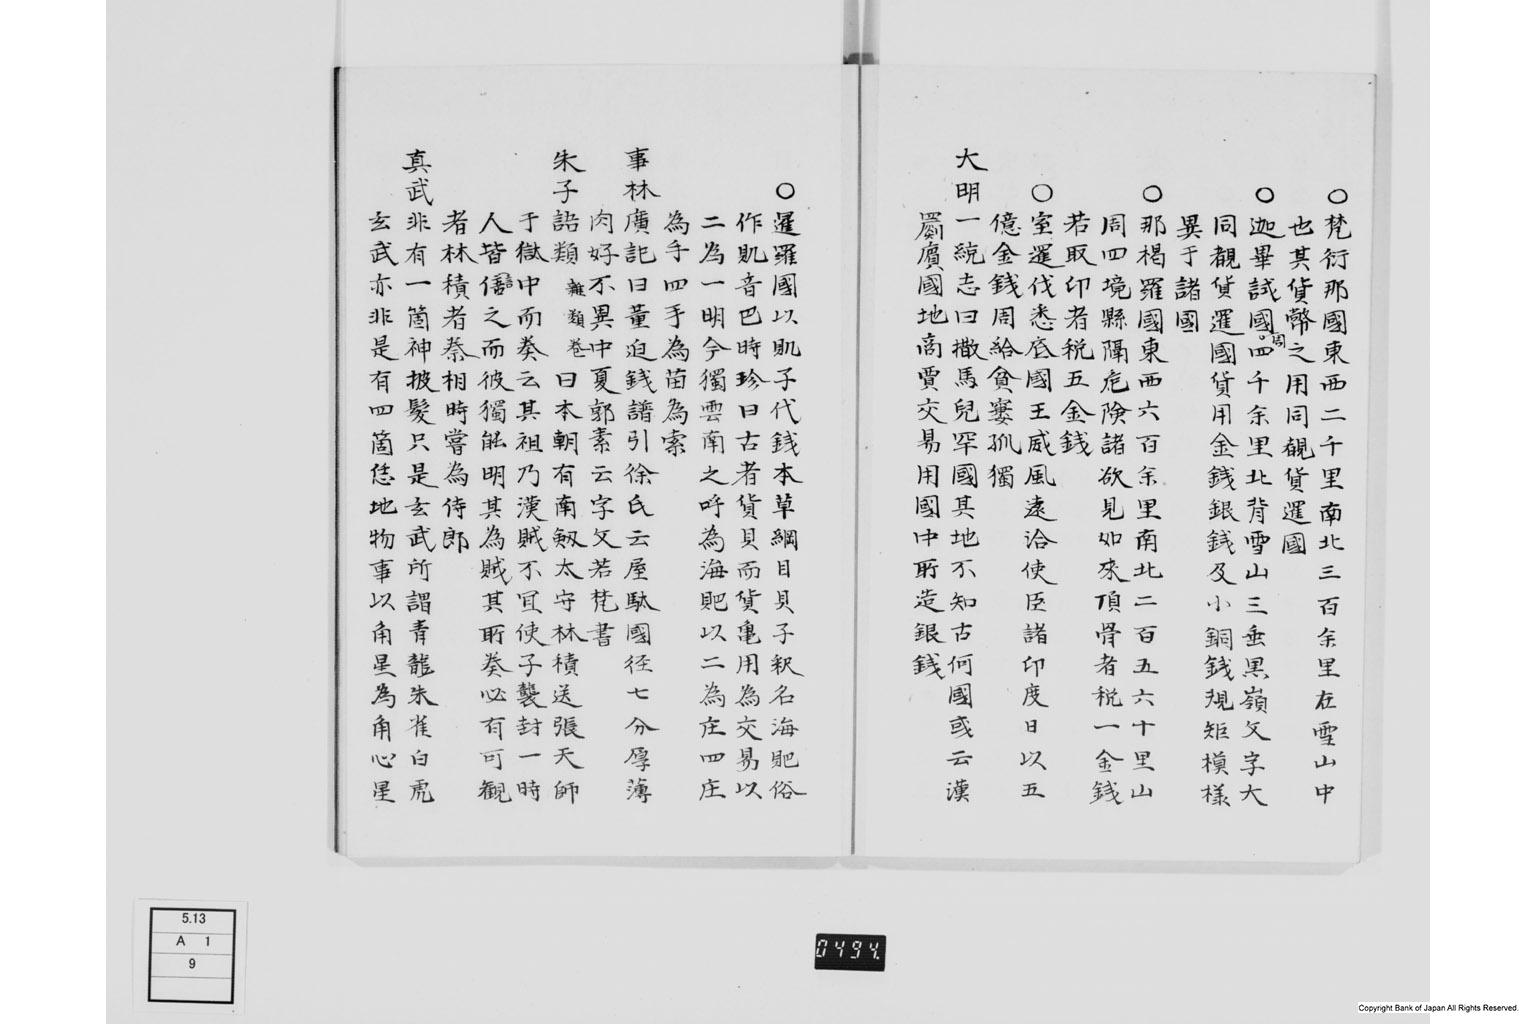 〇梵衍那國東西二千里南北三百余里在雪山中
也其貨幣之用同覩貨邏國
〇迦畢試國周四千余里北背雪山三垂黒嶺文字大
同覩貨邏國貨用金銭銀銭及小銅銭規矩模樣
異于諸國
〇那楬羅國東西六百余里南北二百五六十里山
周四境縣隔危険諸欲見如來頂骨者税一金銭
若取印者税五金銭
〇室邏伐悉底國王威風遠洽使臣諸印度日以五
億金銭周給貧窶孤獨
大明一統志曰撒馬兒罕國其地不知古何國或云漢
罽賓國地商賈交易用國中所造銀銭
〇暹羅國以𧴩子代銭本草綱目貝子釈名海𧴩俗
作𧴩音巴時珍曰古者貨貝而貨亀用為交易以
二為一明今獨雲南之呼為海𧴩以二為庄四庄
為手四手為苗為索
事林廣記曰董逌銭譜引徐氏云屋馱國径七分厚薄
肉好不異中夏郭素云字文若梵書
朱子語類 雜類卷 曰本朝有南劔太守林積送張天師
于獄中而奏云其祖乃漢賊不冝使子襲封一時
人皆信之而彼獨能明其為賊其所奏必有可観
者林積者秦相時嘗為侍郎
真武非有一箇神披髮只是玄武所謂青龍朱雀白虎
玄武亦非是有四箇恁地物事以角星為角心星
5.13
A 1
9
0494.
Copyright Bank of Japan All Rights Reserved.